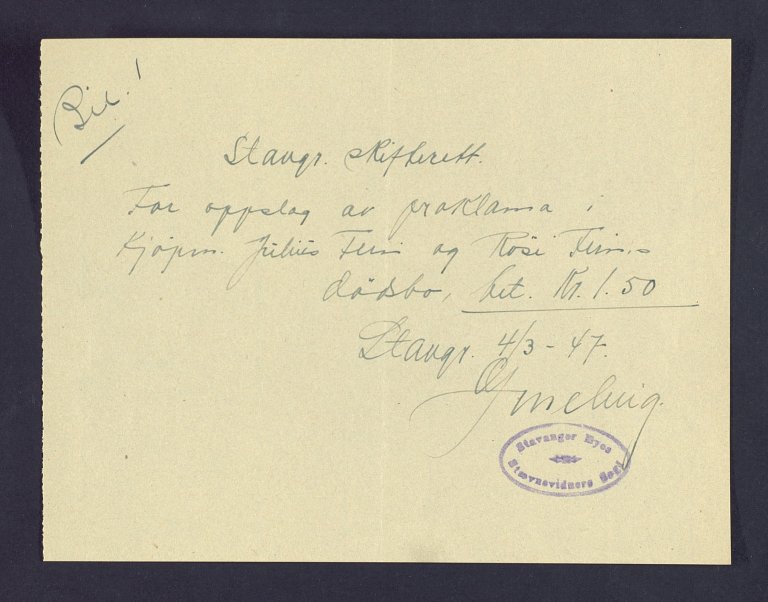 Bil. !
Stavgr. skifterett.
For oppslag av proklama i
Kjøpm. Julius Fein og Rosi Fein,s
dødsbo, bet. Kr. 1.50
Stavgr. 4/3 - 47.
Stavanger Byes
Stævnevidners Segl